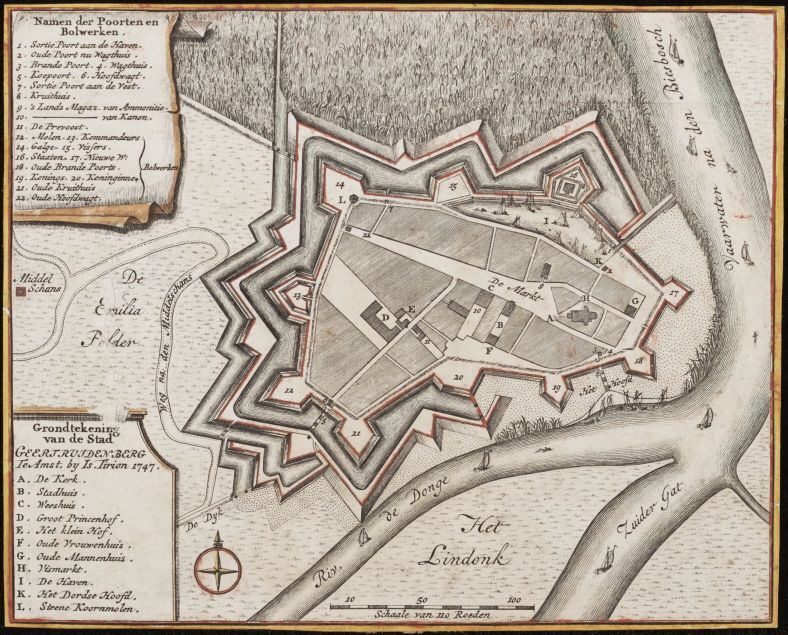 Namen der Poorten en
Bolwerken.
1. Sortie Poort aan de Haven.
2. Oude Poort nu Wagthuis.
3. Brande Poort. 4. Wagthuis.
5. Koepoort. 6. Hoofdwagt.
7. Sortie Poort aan de Vest.
8. Kruithuis.
9. 's Lands Magaz. van Ammonitie
10. ——— van Kanon.
11. De Prevoost.
12. Molen. 13. Kommandeurs
14. Galge. 15. Vissers.
16. Staaten. 17. Nieuwe W.
18. Oude Brande Poorts.
19. Konings. 20. Koninginne
Bolwerken
21. Oude Kruithuis
22. Oude Hoofdwagt.
Biesbosch
Vaarwater na den
Middel
Schans
De
Emilia
Polder
Weg na den Middelschans
14
L
22
15
16
I
K
13
De Markt
C
9
H
G
17
D
E
10
B
A
F
11
12
20
19
18
Het Hoofd
21
De Dyk
Riv. de Donge
Zuider Gat
Het
Lindonk
10 50 100
Schaale van 110 Roeden
Grondtekening
van de Stad
GEERTRUIDENBERG
Te Amst. by Is. Tirion 1747.
A. De Kerk.
B. Stadhuis.
C. Weeshuis.
D. Groot Princenhof.
E. Het klein Hof.
F. Oude Vrouwenhuis.
G. Oude Mannenhuis.
H. Vismarkt.
I. De Haven.
K. Het Dordse Hoofd.
L. Steene Koornmolen.